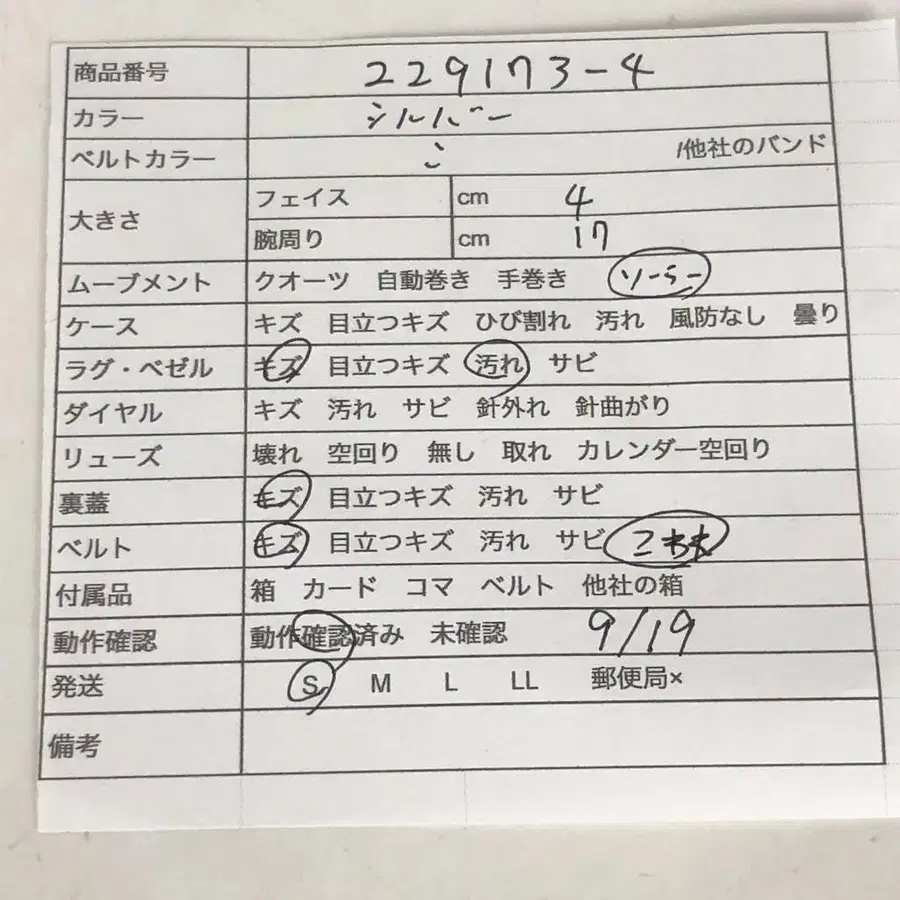 商品番号 229173-4
カラー シルバー
ベルトカラー 〃 /他社のバンド
大きさ フェイス cm 4
腕周り cm 17
ムーブメント クオーツ 自動巻き 手巻き ソーラー
ケース キズ 目立つキズ ひび割れ 汚れ 風防なし 曇り
ラグ・ベゼル キズ 目立つキズ 汚れ サビ
ダイヤル キズ 汚れ サビ 針外れ 針曲がり
リューズ 壊れ 空回り 無し 取れ カレンダー空回り
裏蓋 キズ 目立つキズ 汚れ サビ
ベルト キズ 目立つキズ 汚れ サビ
付属品 箱 カード コマ ベルト 他社の箱
動作確認 動作確認済み 未確認 9/19
発送 S M L LL 郵便局×
備考